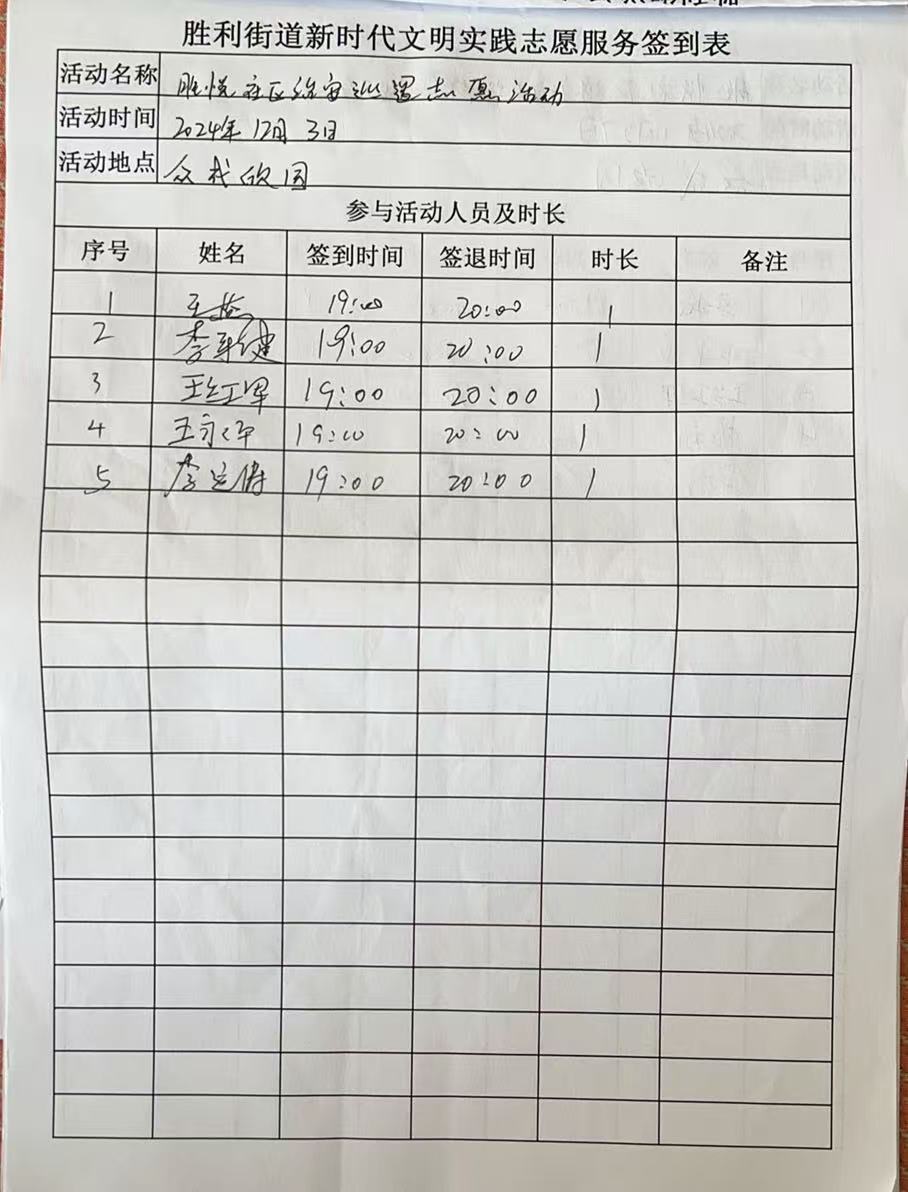 胜利街道新时代文明实践志愿服务签到表
活动名称 胜悦社区治安巡逻志愿活动
活动时间 2024年12月3日
活动地点 众成欣园
参与活动人员及时长
序号 姓名 签到时间 签退时间 时长 备注
1 19:00 20:00 1
2 李军健 19:00 20:00 1
3 王红军 19:00 20:00 1
4 王永军 19:00 20:00 1
5 李 19:00 20:00 1